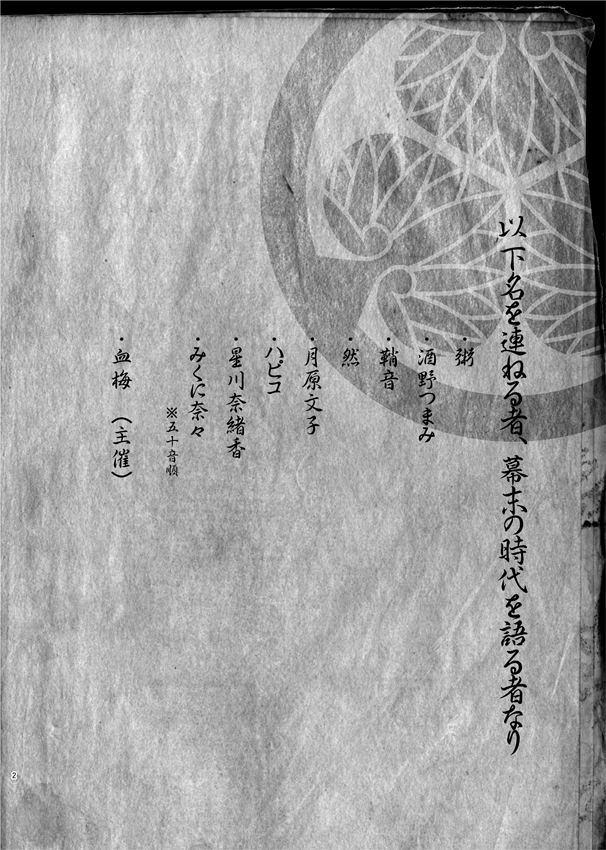 以下名を連ねる者、幕末の時代を語る者なり
・粥
・酒野つまみ
・鞘音
・然
・月原文子
・ハピコ
・星川奈緒香
・みくに奈々
※五十音順
・血梅 (主催)
2